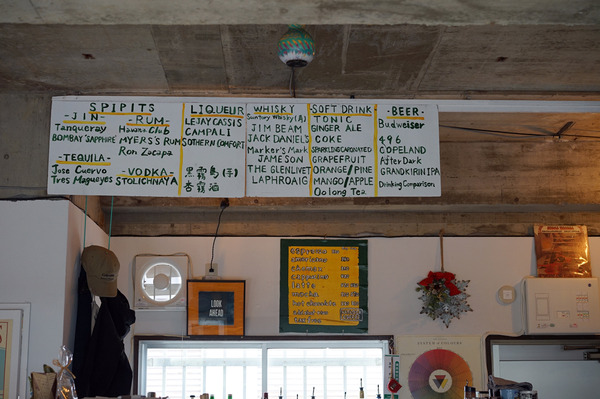 SPIPITS
-JIN-
Tanqueray
BOMBAY SAPPHIRE
-TEQUILA-
Jose Cuervo
Tres Magueyes
-RUM-
Havana Club
MYERS'S RUM
Ron Zacapa
-VODKA-
STOLICHNAYA
LIQUEUR
LEJAY CASSIS
CAMPALI
SOTHERN COMFORT
黒霧島(芋)
杏露酒
WHISKY
Suntory Whisky(A)
JIM BEAM
JACK DANIEL'S
Marker's Mark
JAMESON
THE GLENLIVET
LAPHROAIG
SOFT DRINK
TONIC
GINGER ALE
COKE
SPARKLING CARBONATED
GRAPEFRUIT
ORANGE/PINE
MANGO/APPLE
Oolong Tea
-BEER-
Budweiser
496
COPELAND
After Dark
GRANDKIRIN IPA
Drinking Comparison
LOOK
AHEAD
Latte
hot chocolate